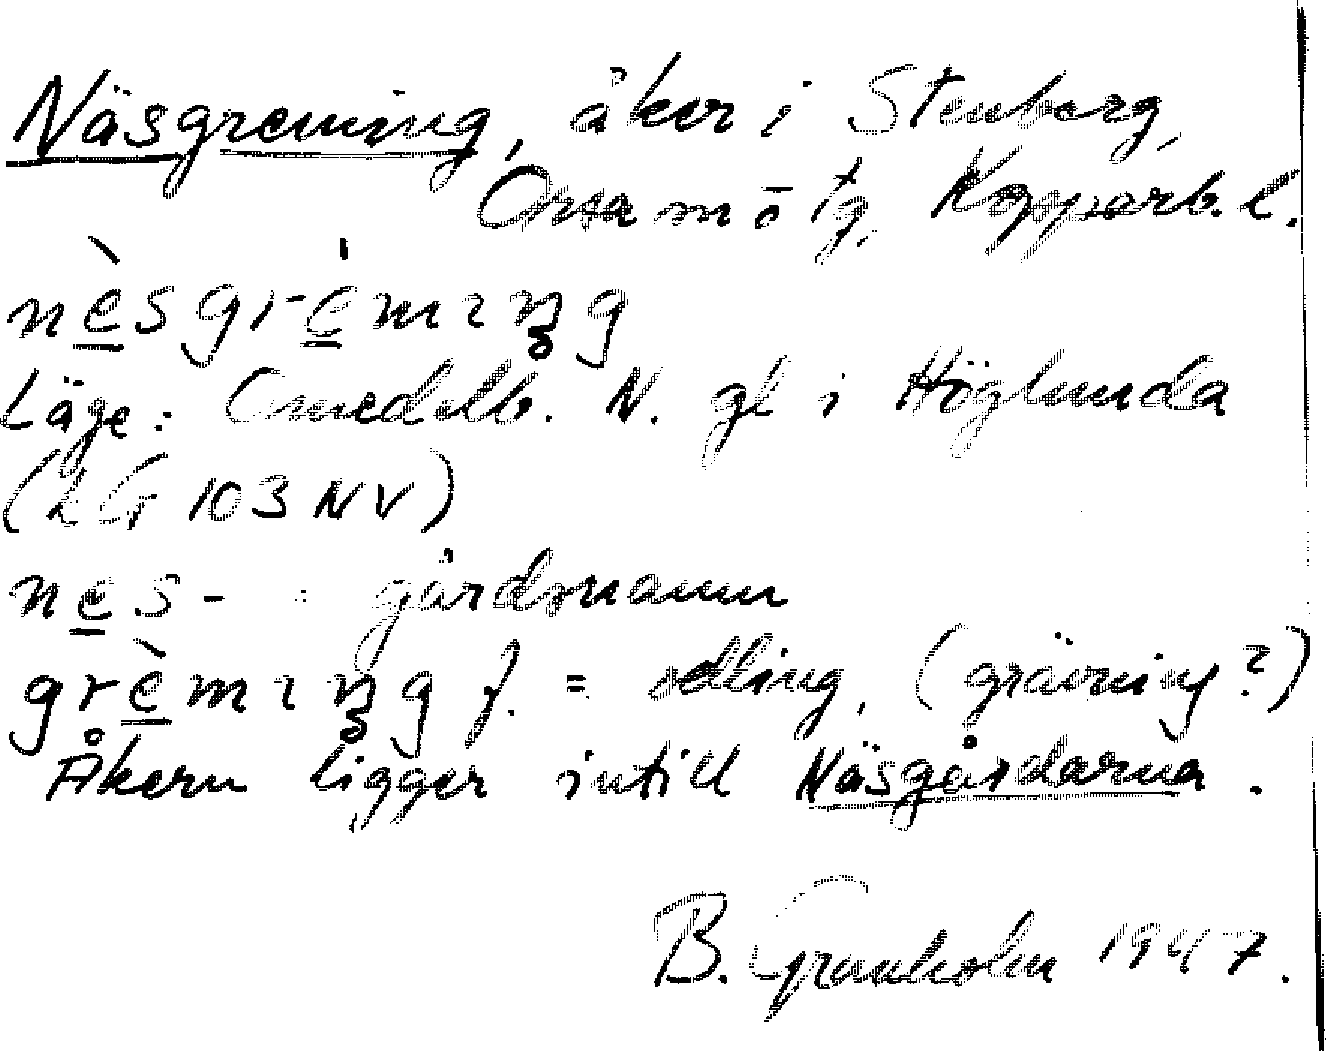 Näsgrening, åker i Stenberg,
Orsa m ö tg, Kopparb. l.
nèsgrèmɪŋg
Läge: Omedelb. N. gl i Höglunda
(LG 103 NV)
nes- : gårdsnamn
grèmɪŋg f. = odling, (grävning?)
Åkern ligger intill Näsgårdarna.
B. Granholm 1947.